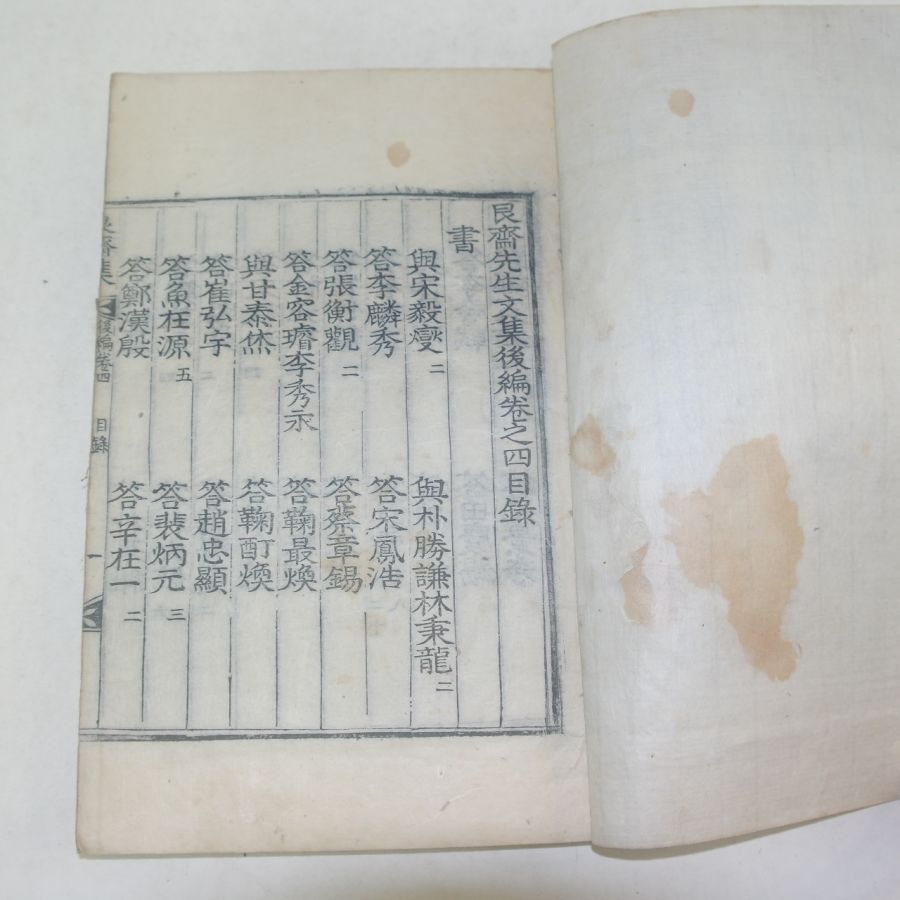 艮齋先生文集後編卷之四目錄
書
與宋毅燮 二
與朴勝謙林秉龍 二
答李麟秀
答宋鳳浩
答張衡觀 二
答蔡章錫
答金容璿李秀永
答鞠最煥
與甘泰烋
答鞠酊煥
答崔弘宇
答趙忠顯
答魚在源 五
答裴炳元 三
答鄭漢殷
答辛在一 二
艮齋集
後編卷四
目錄
一